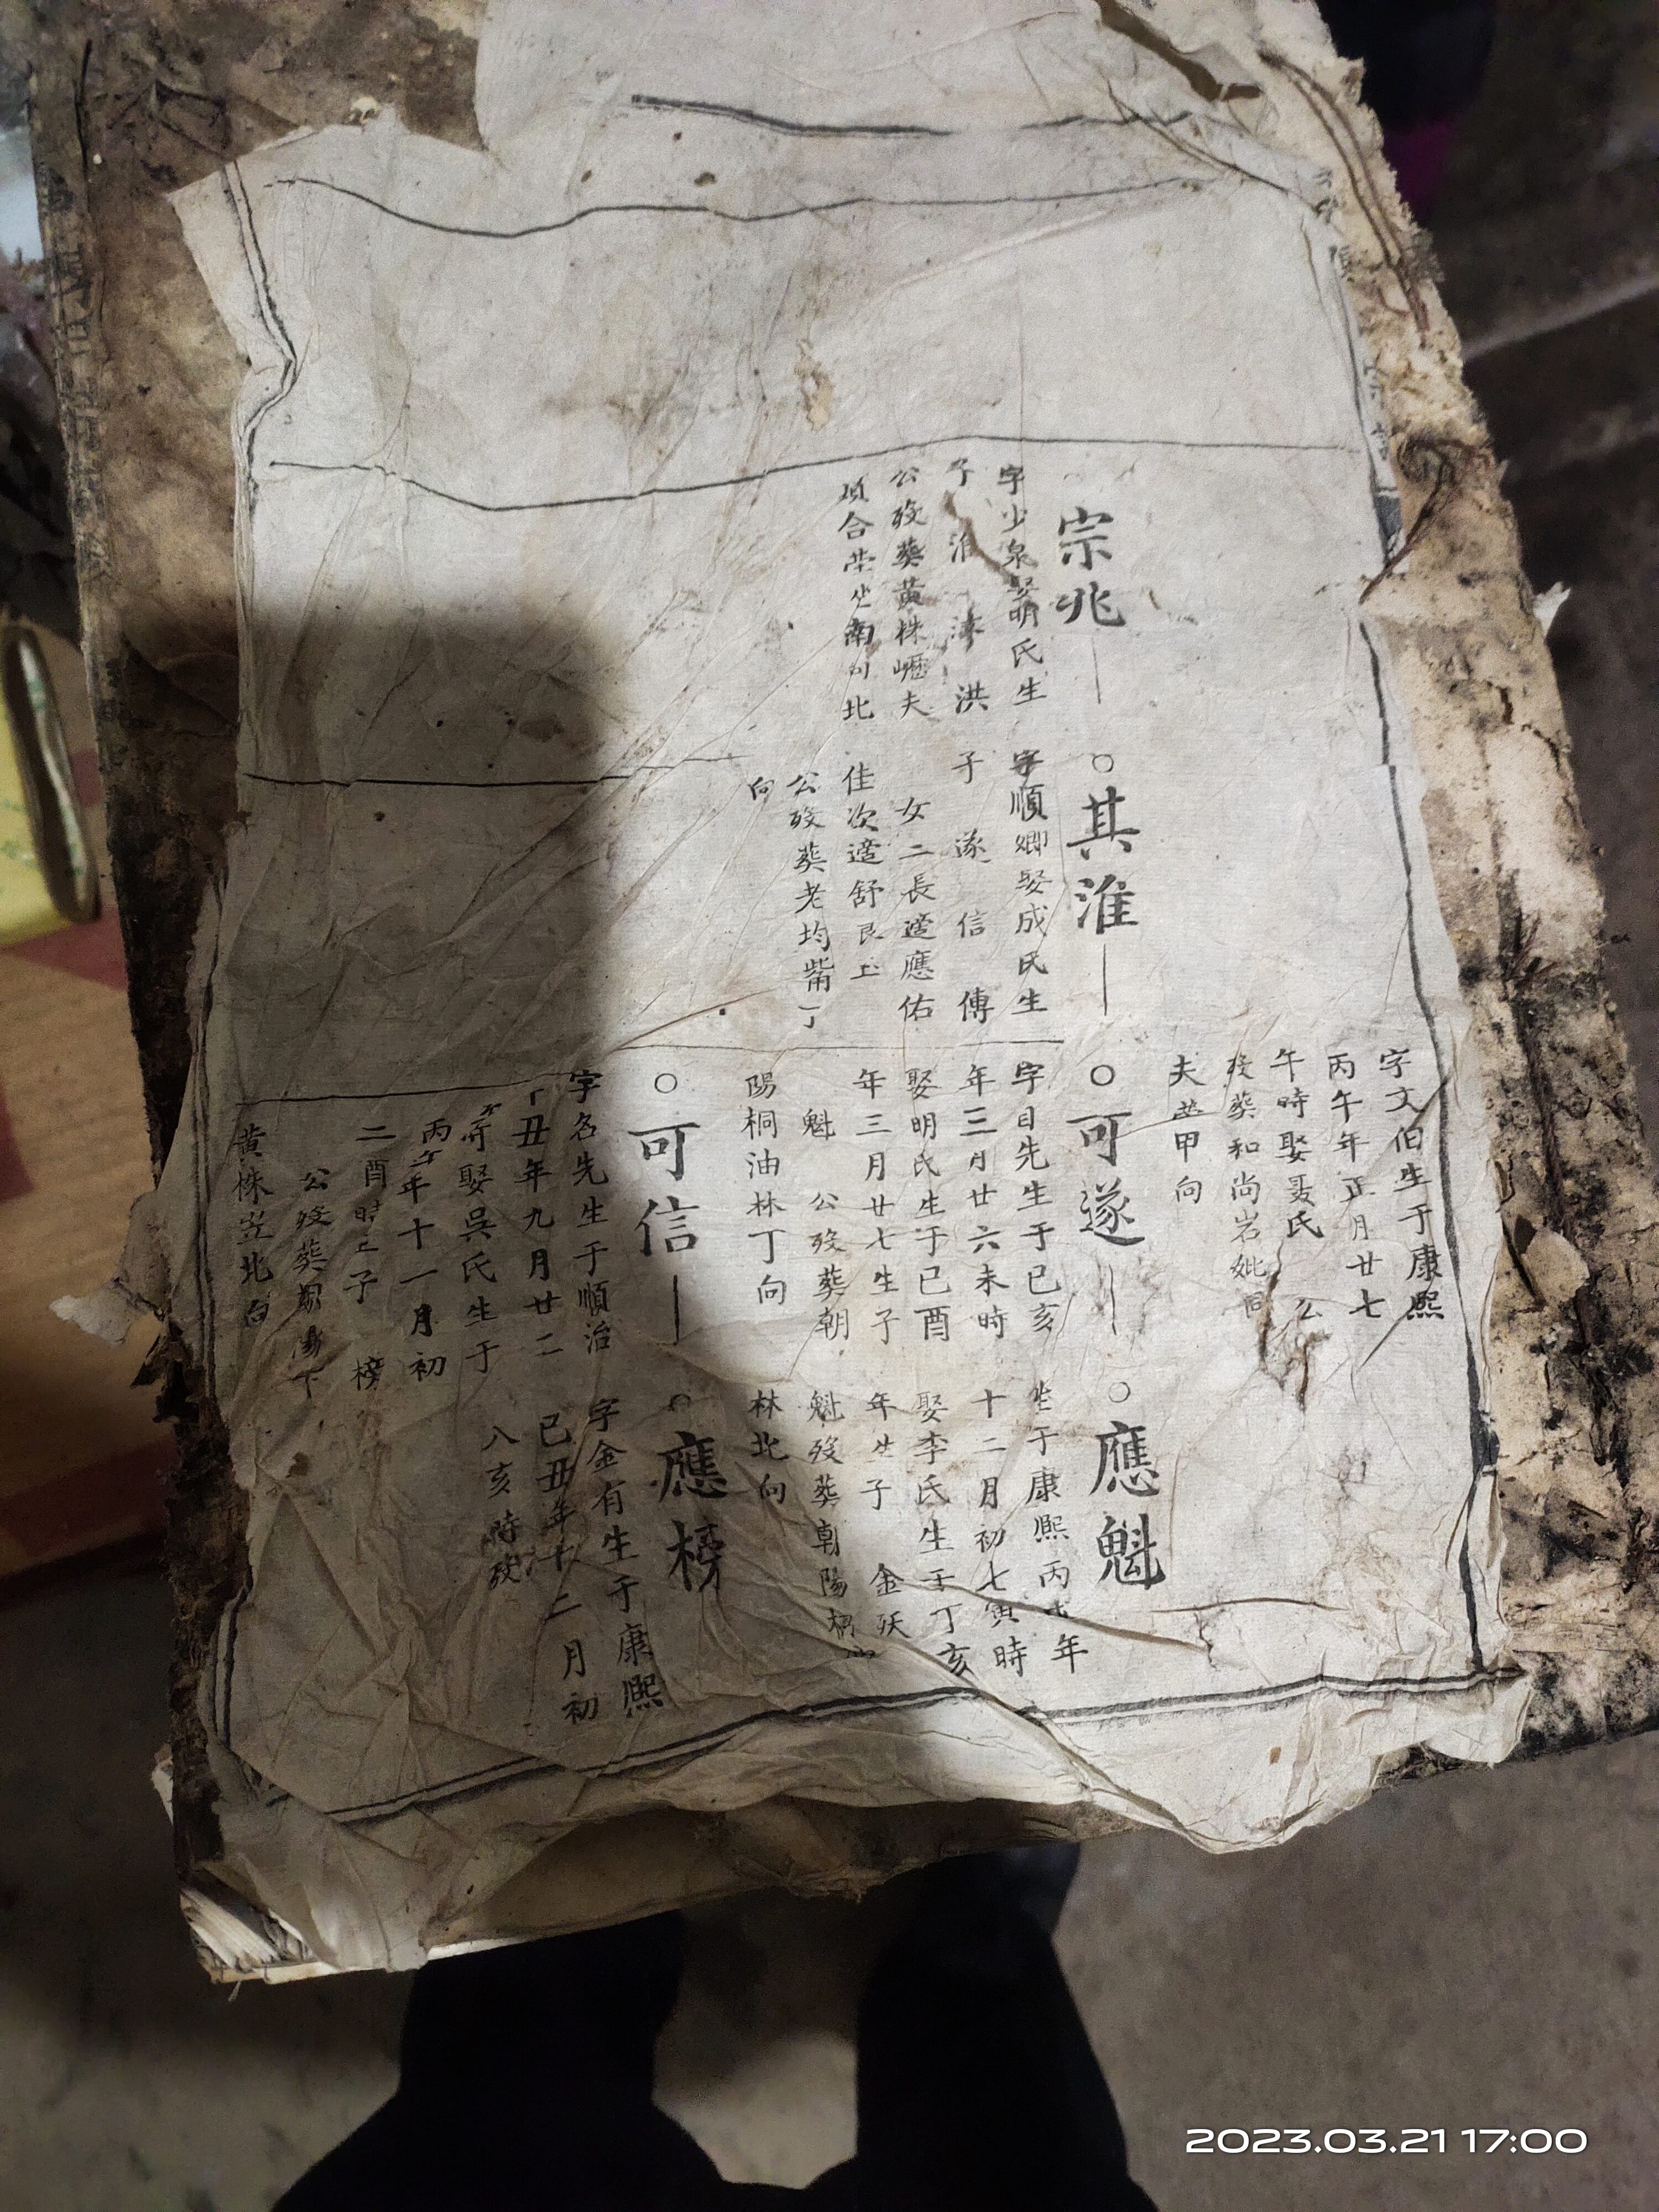 字文伯生于康熙
丙午年正月廿七
午時娶聶氏 公
歿葬和尚岩妣同
夫塋甲向
宗兆
字少泉娶明氏生
子 淮 洪
公歿葬黃株嶇夫
合塋 南 北
○其淮
字順卿娶成氏生
子 遂 信 傳
女二長適應佑
佳次適舒良玉
公歿葬老均嘴丁
向
○可遂
字目先生于己亥
年三月廿六未時
娶明氏生于己酉
年三月廿七生子
魁 公歿葬朝
陽桐油林丁向
○應魁
生于康熙丙 年
十二月初七寅時
娶李氏生于丁亥
年生子 金
魁歿葬朝陽桐油
林北向
○可信
字名先生于順治
丁丑年九月廿二
娶吳氏生于
丙午年十一月初
二酉時 子 榜
公歿葬朝陽下
黃株 北向
○應榜
字金有生于康熙
己丑年十二月初
八亥時歿
2023.03.21 17:00